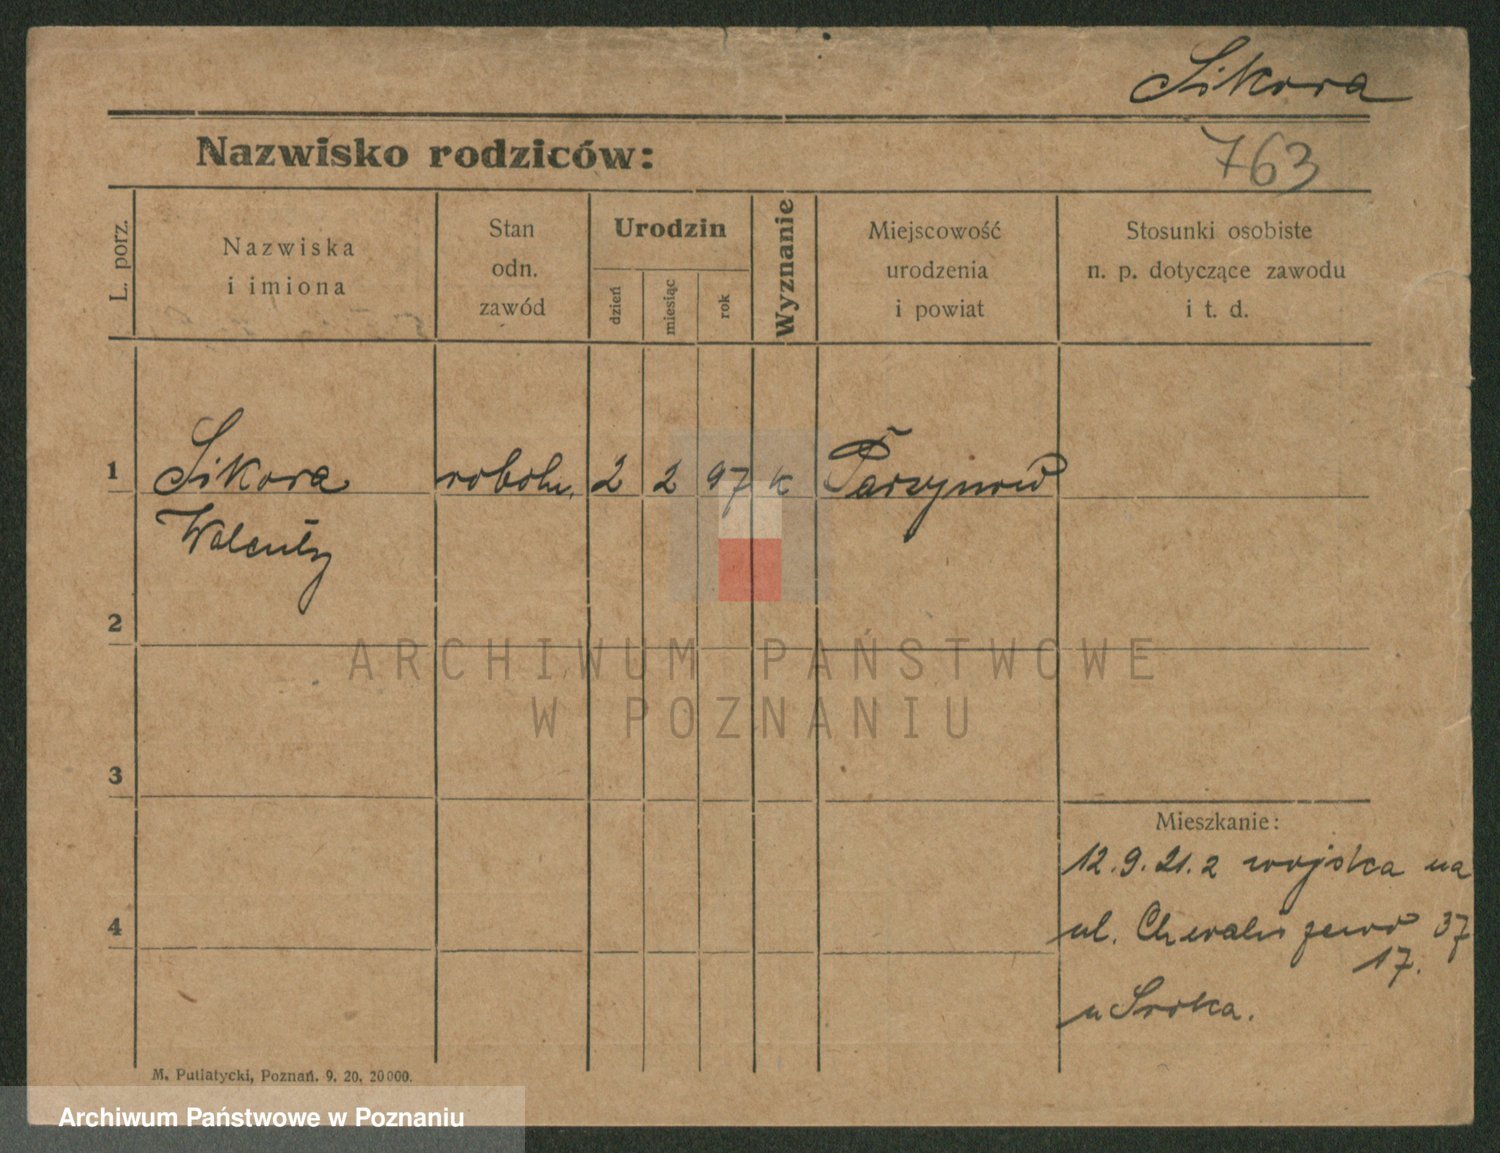 Sikora
Nazwisko rodziców:
763
L. porz.
Nazwiska
i imiona
Stan
odn.
zawód
Urodzin
dzień
miesiąc
rok
Wyznanie
Miejscowość
urodzenia
i powiat
Stosunki osobiste
n. p. dotyczące zawodu
i t. d.
1 Sikora robotn. 2 2 97 k Parzynów
Walenty
2
3
Mieszkanie:
12.9.21. z wojska na
4
ul. 37
17.
u Sroka.
M. Putiatycki, Poznań. 9. 20. 20000.
ARCHIWUM PAŃSTWOWE
W POZNANIU
Archiwum Państwowe w Poznaniu